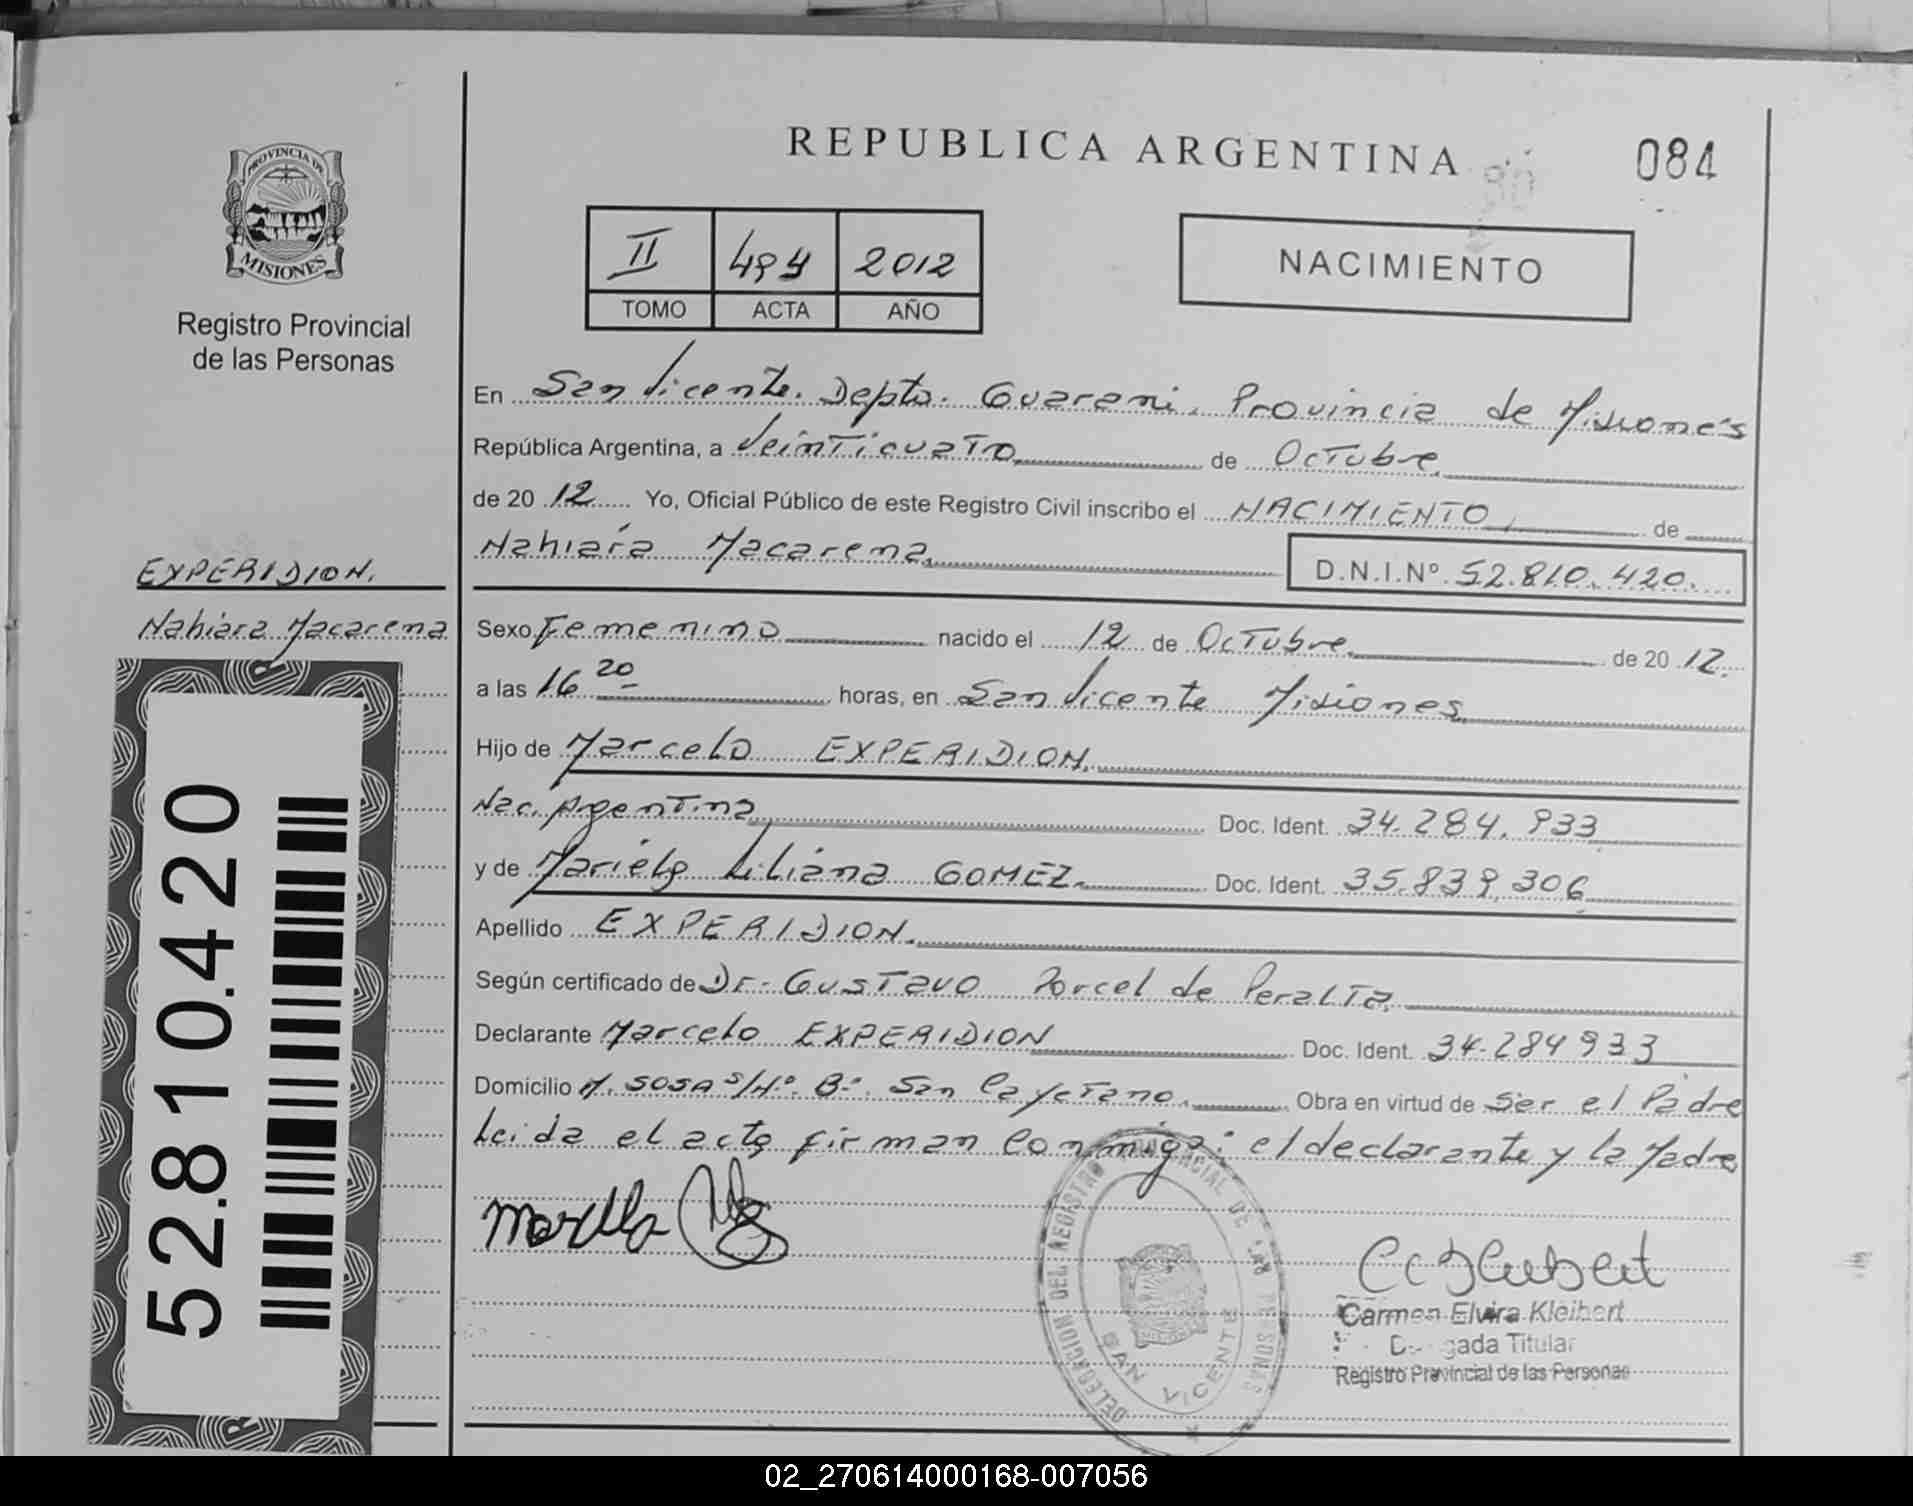 REPUBLICA ARGENTINA
084
PROVINCIA DE
MISIONES
Registro Provincial
de las Personas
II 494 2012
TOMO ACTA AÑO
NACIMIENTO
En San Vicente. Depto. Guarani. Provincia de Misiones
República Argentina, a Veinticuatro de Octubre
de 20 12 Yo, Oficial Público de este Registro Civil inscribo el NACIMIENTO, de
Nahiara Macarena
D.N.I.Nº 52.810.420.
EXPERIDION.
Nahiara Macarena
Sexo Femenino nacido el 12 de Octubre de 20 12.
a las 16 20 horas, en San Vicente Misiones
Hijo de Marcelo EXPERIDION.
Nac. Argentina Doc. Ident. 34.284.933
y de Mariela Liliana GOMEZ. Doc. Ident. 35.839.306
Apellido EXPERIDION.
Según certificado de Dr. Gustavo Porcel de Peralta.
Declarante Marcelo EXPERIDION Doc. Ident. 34.284933
Domicilio M. SOSA s/Nº. Bº. San Cayetano. Obra en virtud de Ser el Padre
Leida el acta firman conmigo: el declarante y la Madre
52.810.420
DELEGACION DEL REGISTRO PROVINCIAL DE LAS PERSONAS
SAN VICENTE
Carmen Elvira Kleibert
Delegada Titular
Registro Provincial de las Personas
02_270614000168-007056